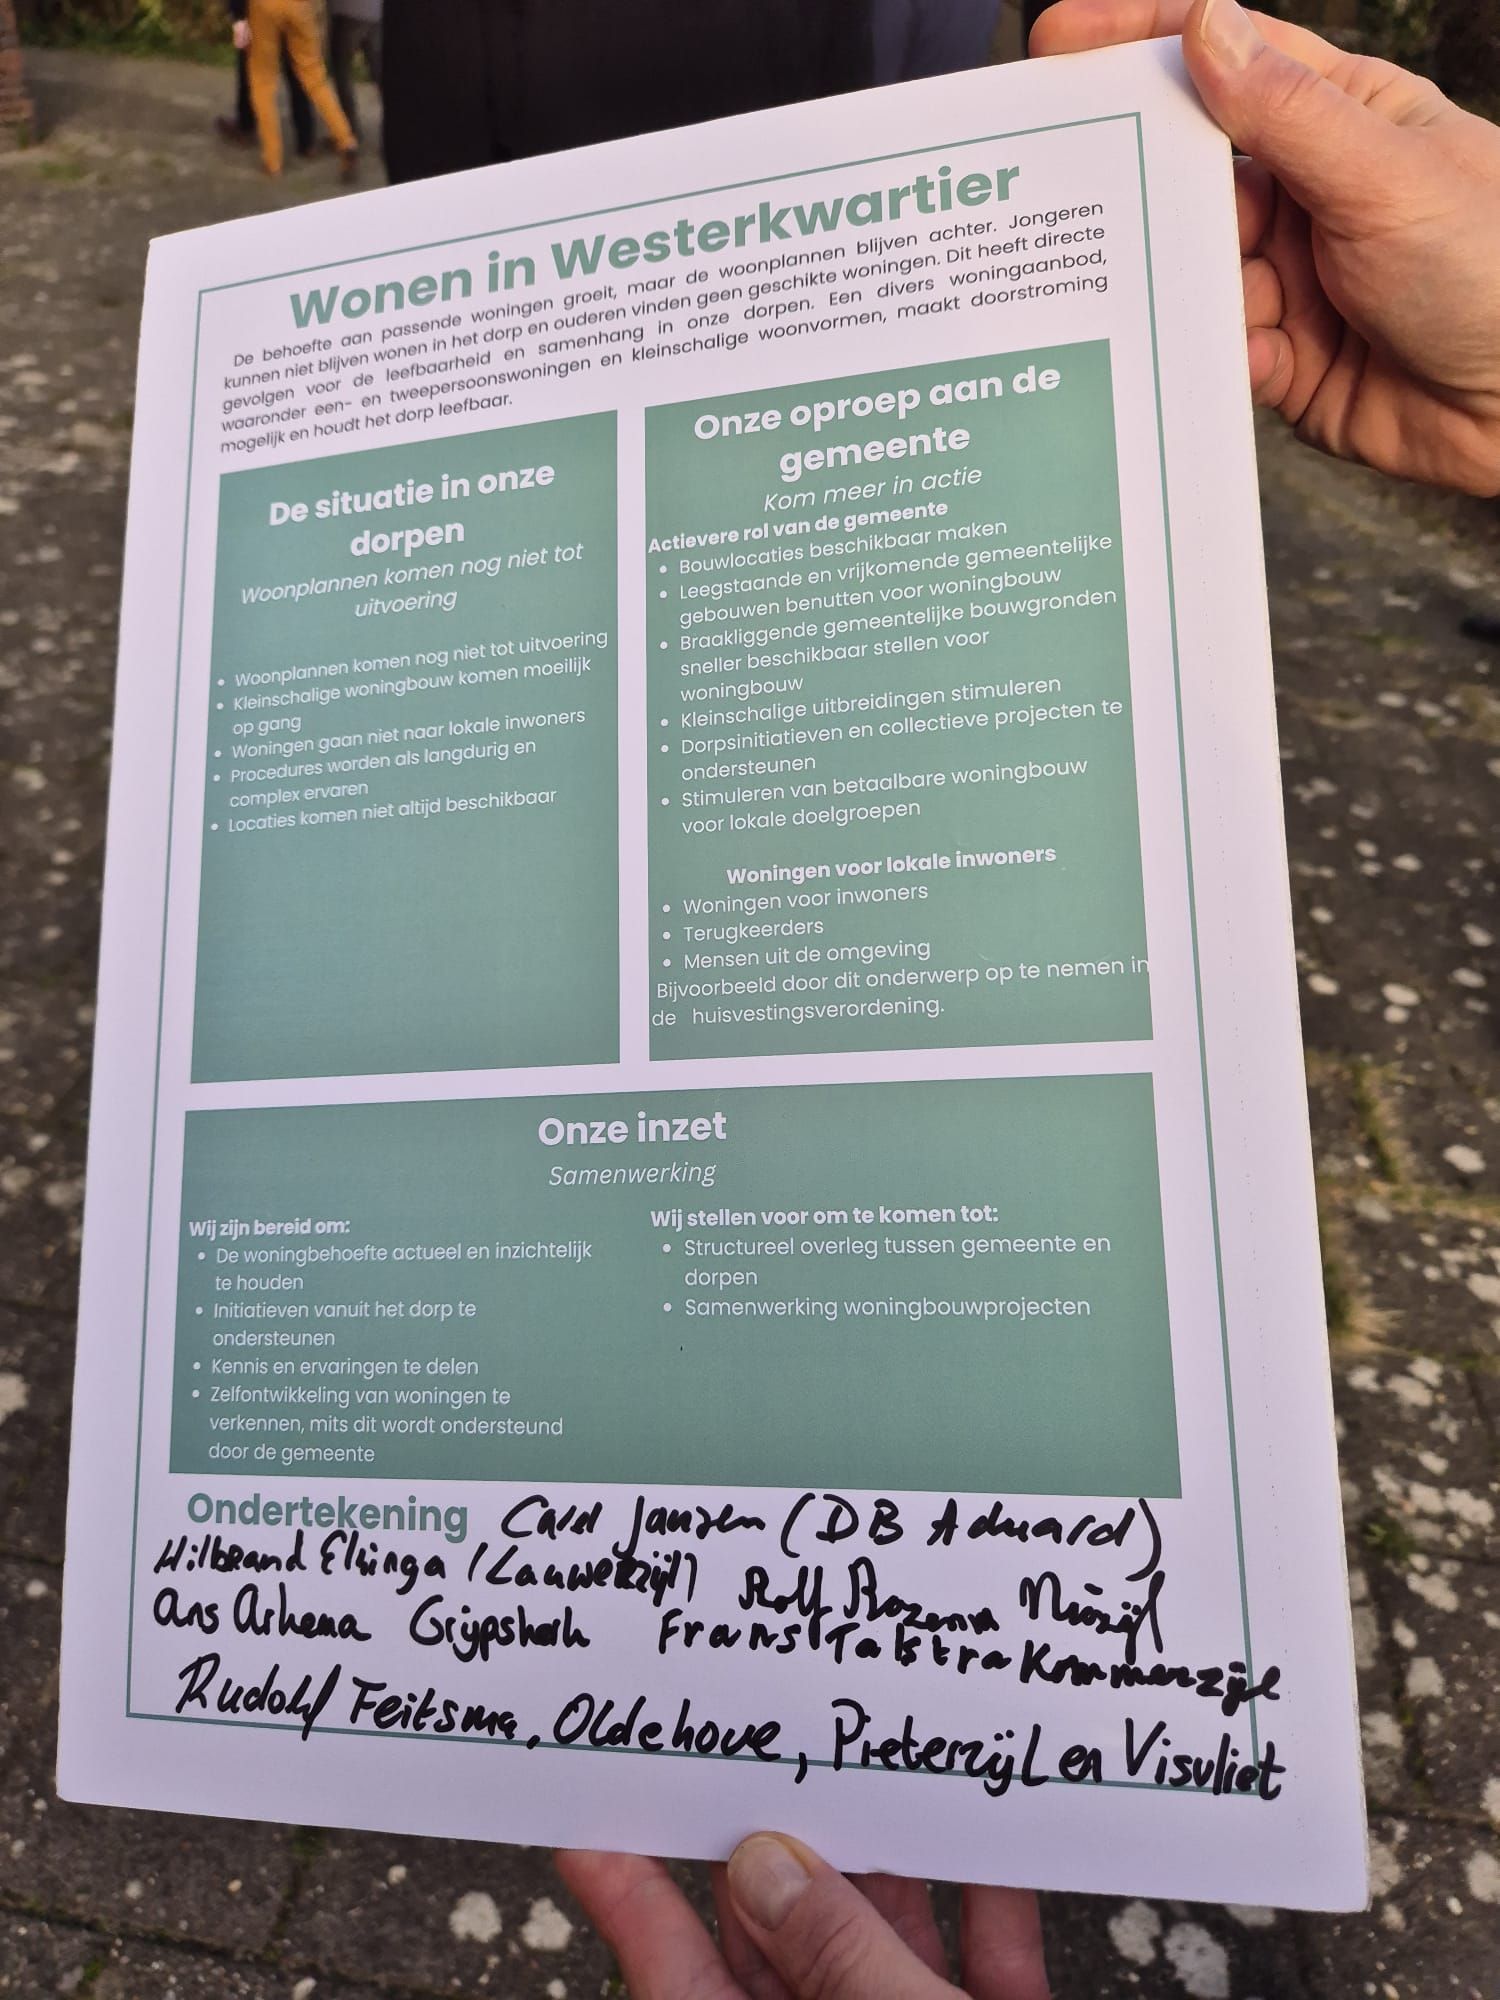 Wonen in Westerkwartier
De behoefte aan passende woningen groeit, maar de woonplannen blijven achter. Jongeren
kunnen niet blijven wonen in het dorp en ouderen vinden geen geschikte woningen. Dit heeft directe
gevolgen voor de leefbaarheid en samenhang in onze dorpen. Een divers woningaanbod,
waaronder een- en tweepersoonswoningen en kleinschalige woonvormen, maakt doorstroming
mogelijk en houdt het dorp leefbaar.
De situatie in onze
dorpen
Woonplannen komen nog niet tot
uitvoering
• Woonplannen komen nog niet tot uitvoering
• Kleinschalige woningbouw komen moeilijk
op gang
• Woningen gaan niet naar lokale inwoners
• Procedures worden als langdurig en
complex ervaren
• Locaties komen niet altijd beschikbaar
Onze oproep aan de
gemeente
Kom meer in actie
Actievere rol van de gemeente
• Bouwlocaties beschikbaar maken
• Leegstaande en vrijkomende gemeentelijke
gebouwen benutten voor woningbouw
• Braakliggende gemeentelijke bouwgronden
sneller beschikbaar stellen voor
woningbouw
• Kleinschalige uitbreidingen stimuleren
• Dorpsinitiatieven en collectieve projecten te
ondersteunen
• Stimuleren van betaalbare woningbouw
voor lokale doelgroepen
Woningen voor lokale inwoners
• Woningen voor inwoners
• Terugkeerders
• Mensen uit de omgeving
Bijvoorbeeld door dit onderwerp op te nemen in
de huisvestingsverordening.
Onze inzet
Samenwerking
Wij zijn bereid om:
• De woningbehoefte actueel en inzichtelijk
te houden
• Initiatieven vanuit het dorp te
ondersteunen
• Kennis en ervaringen te delen
• Zelfontwikkeling van woningen te
verkennen, mits dit wordt ondersteund
door de gemeente
Wij stellen voor om te komen tot:
• Structureel overleg tussen gemeente en
dorpen
• Samenwerking woningbouwprojecten
Ondertekening Jansen (DB Aduard)
Hilbrand Elzinga (Lauwerzijl) Rolf Rozema Niezijl
Ans Arkema Grijpskerk Frans Talstra Kommerzijl
Rudolf Feitsma, Oldehove, Pieterzijl en Visvliet